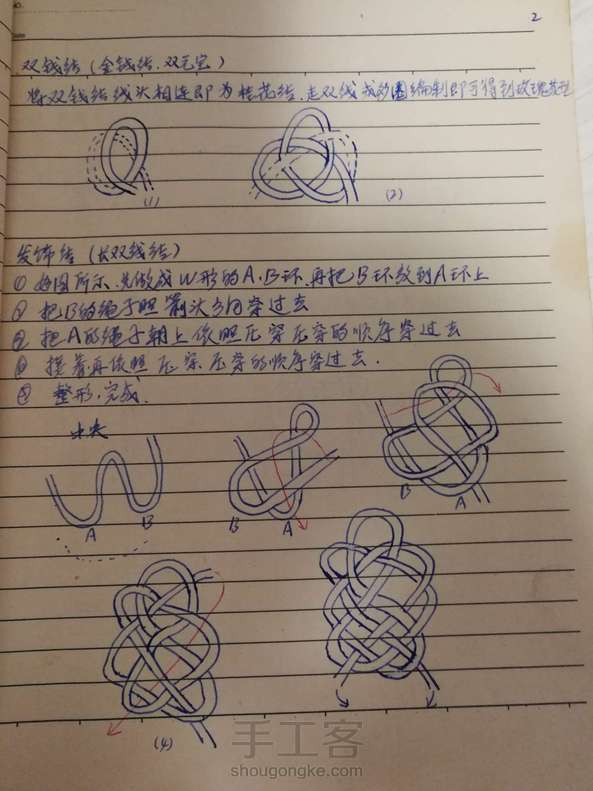 2
双钱结（金钱结.双元宝）
将双钱结线头相连即为桂花结.走双线或多圈编制即可得到玫瑰花型
(1)
(2)
发饰结（长双线结）
① 如图所示.先做成W形的A.B环.再把B环纹到A环上
② 把B的绳子照箭头方向穿过去
③ 把A的绳子朝上依照压穿压穿的顺序穿过去
④ 接着再依照压穿.压穿的顺序穿过去.
⑤ 整形.完成.
中央
A B
B A
B A
(4)
手工客
shougongke.com